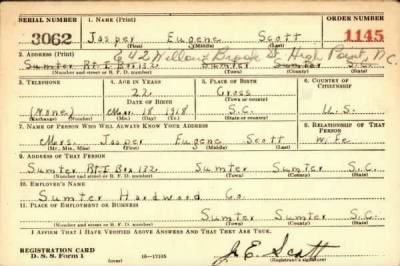 SERIAL NUMBER 1. NAME (Print) ORDER NUMBER
3062 Jasper Eugene Scott 1145
(First) (Middle) (Last)
642 Willow Brook St High Point, N.C.
2. ADDRESS (Print)
Sumter Rt. 1 Box 132 Sumter Sumter S.C.
(Number and street or R. F. D. number) (Town) (County) (State)
3. TELEPHONE 4. AGE IN YEARS 5. PLACE OF BIRTH 6. COUNTRY OF CITIZENSHIP
22 Gross
DATE OF BIRTH (Town or county)
(None) Mar. 18 1918 S.C. U.S.
(Exchange) (Number) (Mo.) (Day) (Yr.) (State or country)
7. NAME OF PERSON WHO WILL ALWAYS KNOW YOUR ADDRESS 8. RELATIONSHIP OF THAT PERSON
Mrs. Jasper Eugene Scott Wife
(Mr., Mrs., Miss) (First) (Middle) (Last)
9. ADDRESS OF THAT PERSON
Sumter Rt. 1 Box 132 Sumter Sumter S.C.
(Number and street or R. F. D. number) (Town) (County) (State)
10. EMPLOYER'S NAME
Sumter Hardwood Co.
11. PLACE OF EMPLOYMENT OR BUSINESS
Sumter Sumter S.C.
(Number and street or R. F. D. number) (Town) (County) (State)
I AFFIRM THAT I HAVE VERIFIED ABOVE ANSWERS AND THAT THEY ARE TRUE.
REGISTRATION CARD
D. S. S. Form 1 (over) 16-17105 J. E. Scott
(Registrant's signature)